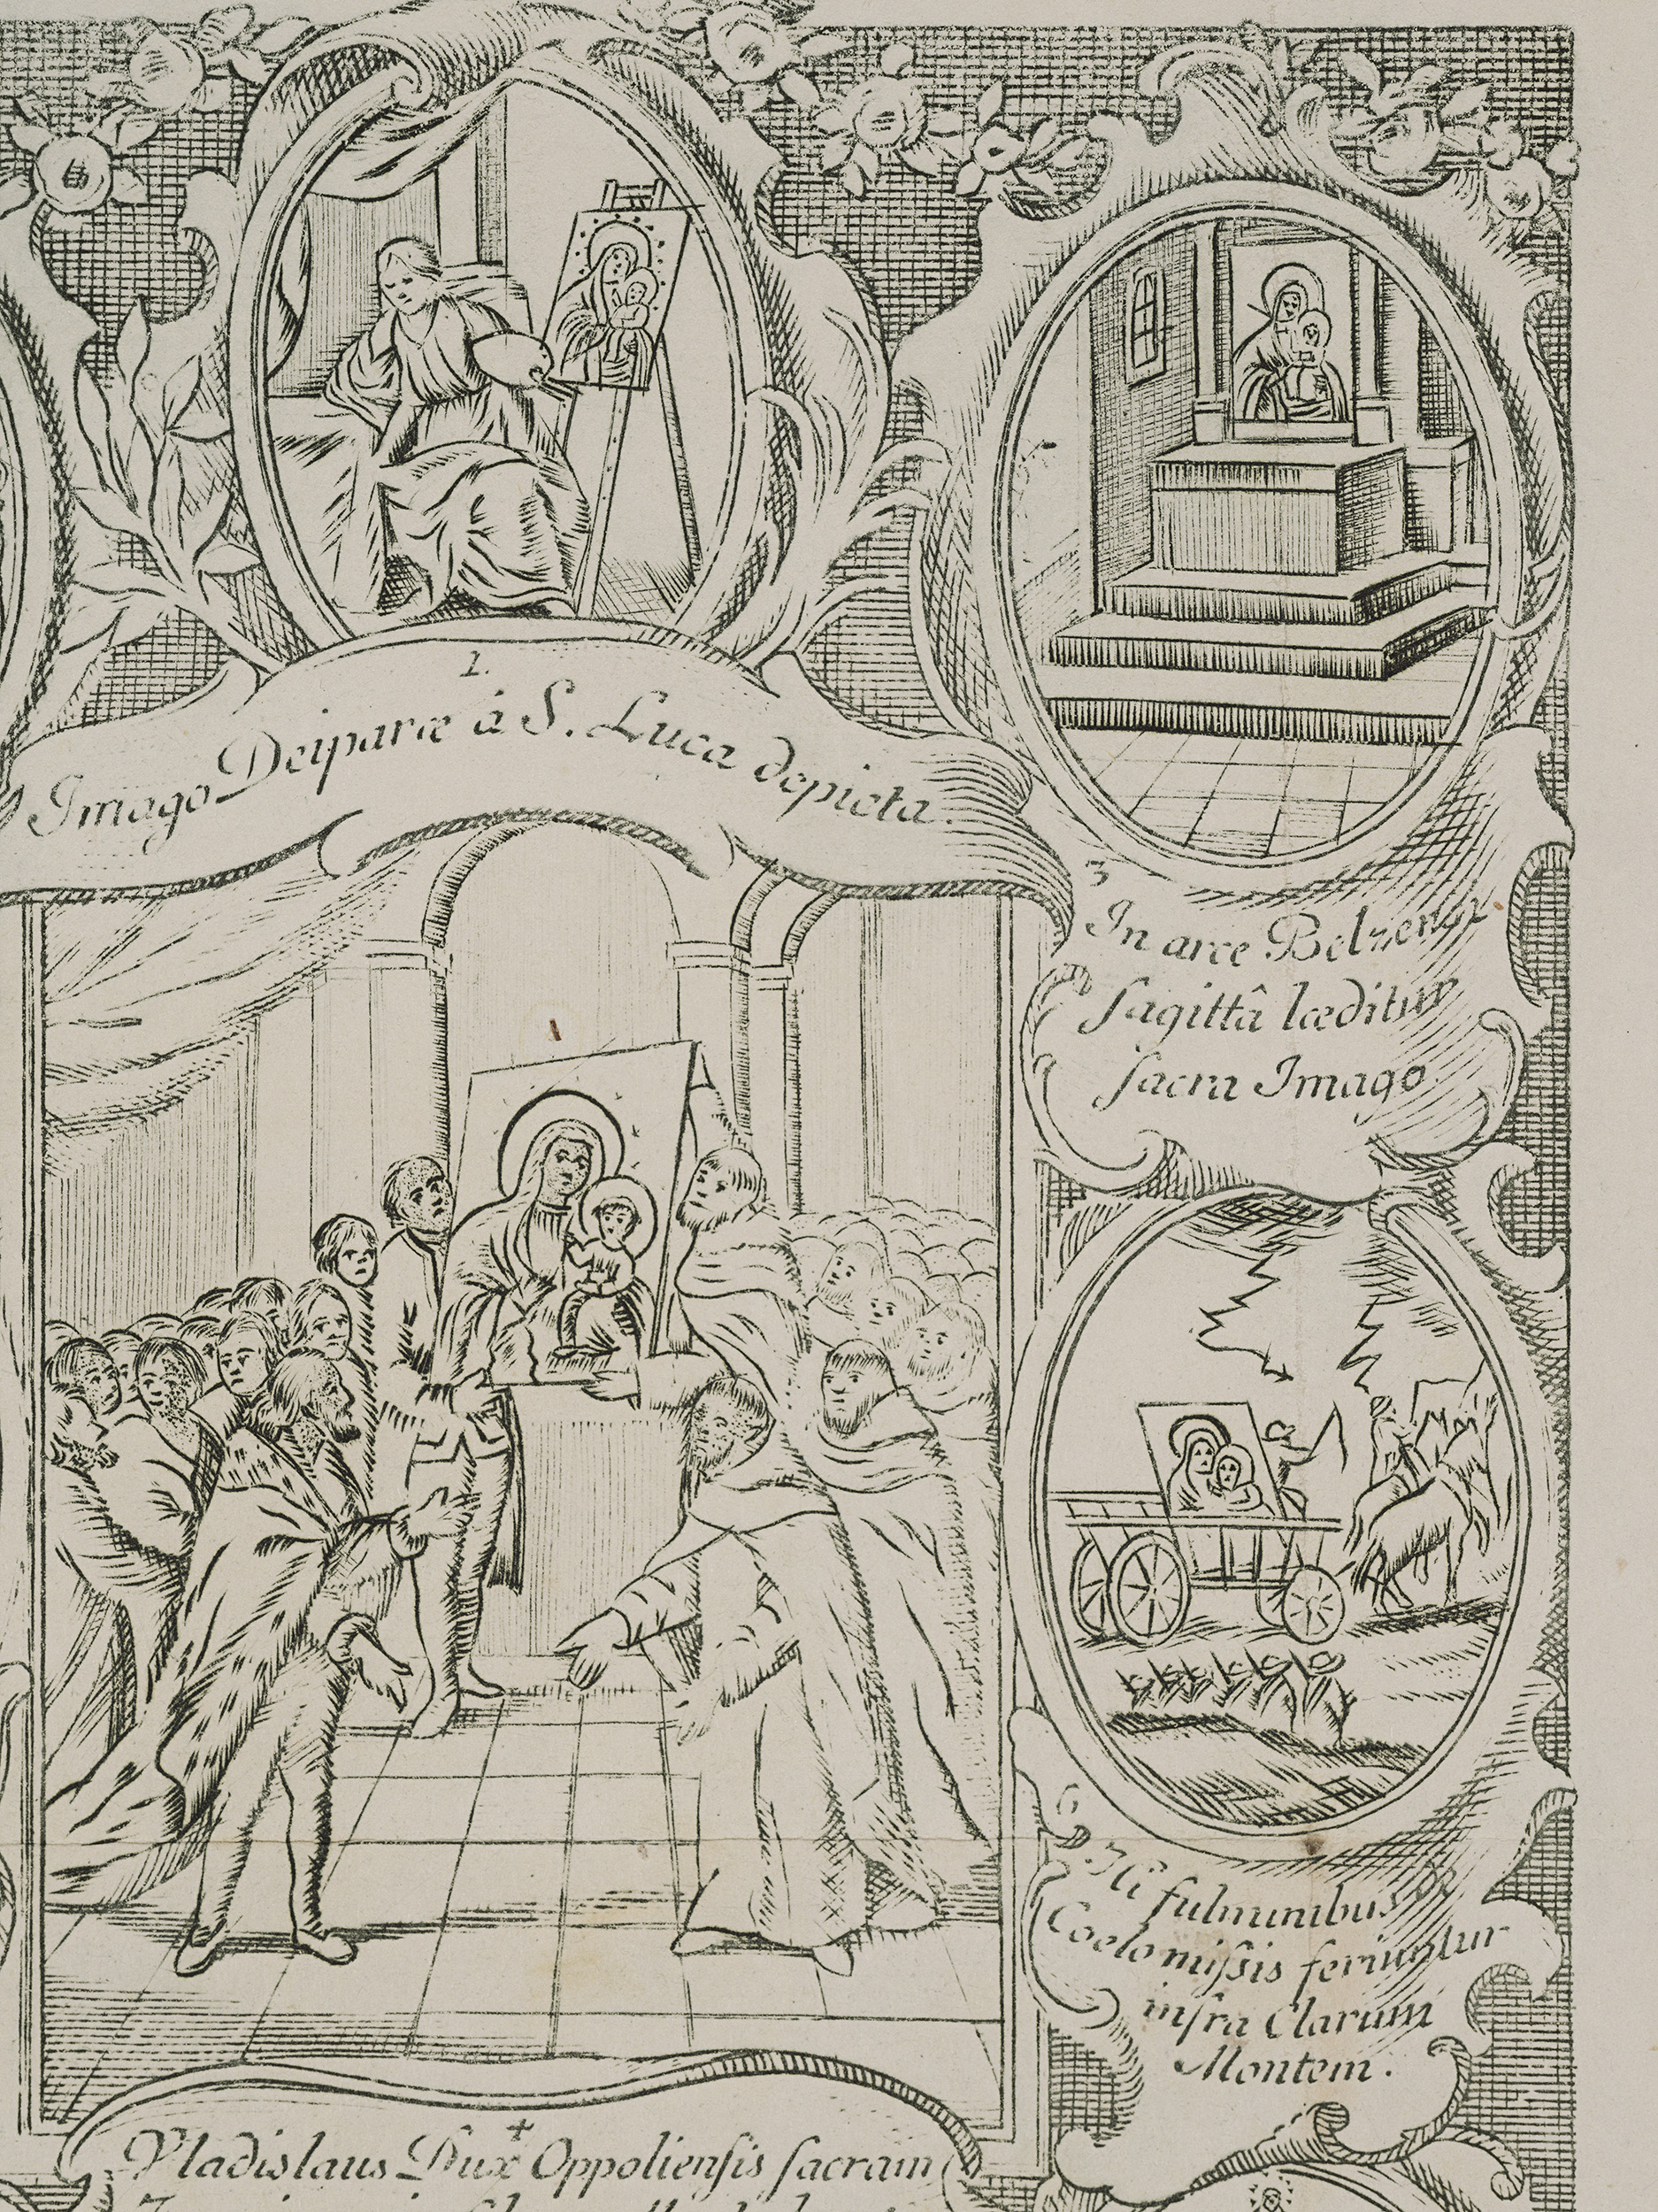 1.
Imago Deiparæ à S. Luca depicta.
3
In arce Belzensi
sagittâ læditur
sacra Imago.
6. Hi fulminibus è
Coelo missis feriuntur
infra Clarum
Montem.
Vladislaus Dux Oppoliensis sacram